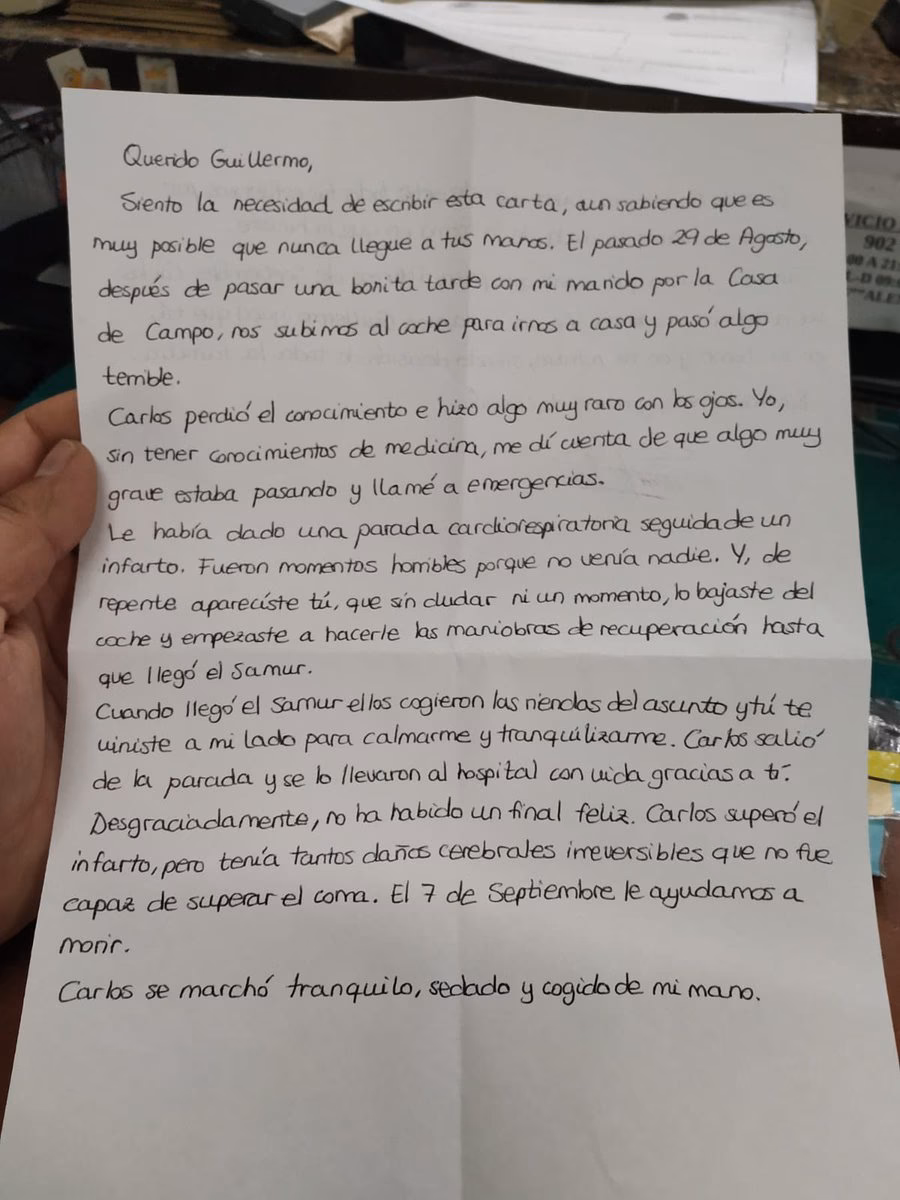 Querido Guillermo,
Siento la necesidad de escribir esta carta, aun sabiendo que es
muy posible que nunca llegue a tus manos. El pasado 29 de Agosto,
después de pasar una bonita tarde con mi marido por la Casa
de Campo, nos subimos al coche para irnos a casa y pasó algo
terrible.
Carlos perdió el conocimiento e hizo algo muy raro con los ojos. Yo,
sin tener conocimientos de medicina, me dí cuenta de que algo muy
grave estaba pasando y llamé a emergencias.
Le había dado una parada cardiorespiratoria seguida de un
infarto. Fueron momentos horribles porque no venía nadie. Y, de
repente apareciste tú, que sin dudar ni un momento, lo bajaste del
coche y empezaste a hacerle las maniobras de recuperación hasta
que llegó el Samur.
Cuando llegó el Samur ellos cogieron las riendas del asunto y tú te
viniste a mi lado para calmarme y tranquilizarme. Carlos salió
de la parada y se lo llevaron al hospital con vida gracias a tí.
Desgraciadamente, no ha habido un final feliz. Carlos superó el
infarto, pero tenía tantos daños cerebrales irreversibles que no fue
capaz de superar el coma. El 7 de Septiembre le ayudamos a
morir.
Carlos se marchó tranquilo, sedado y cogido de mi mano.
VICIO
902
00 A 21: